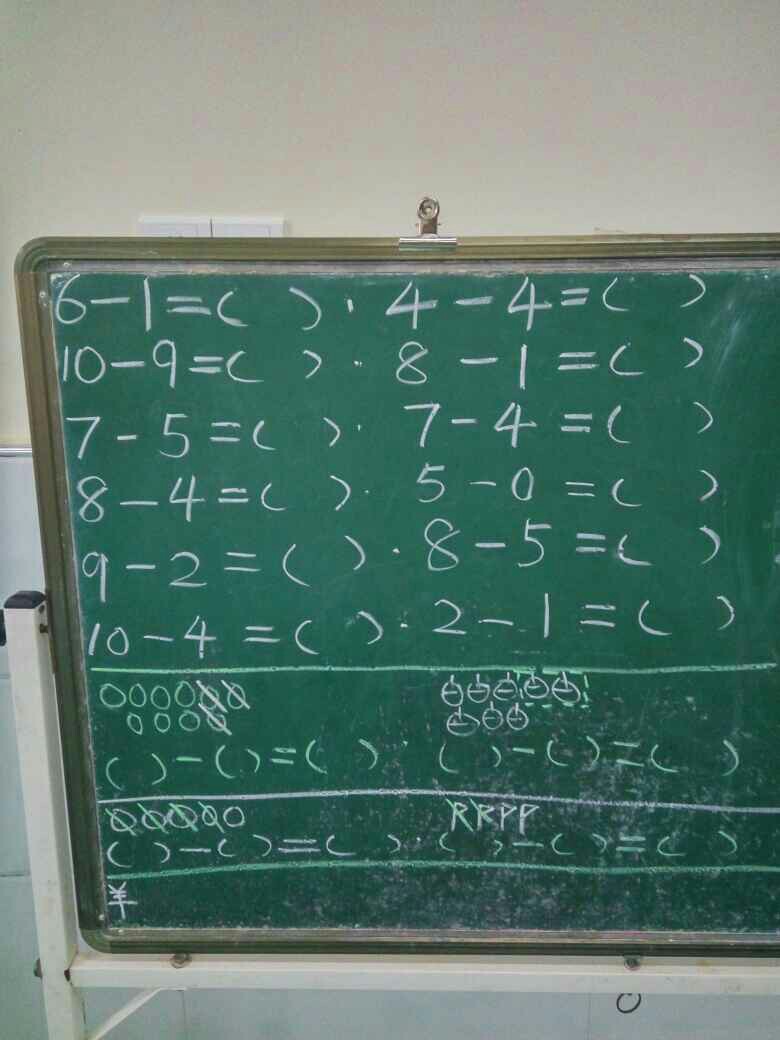 6-1=( ). 4-4=( )
10-9=( ). 8-1=( )
7-5=( ). 7-4=( )
8-4=( ). 5-0=( )
9-2=( ). 8-5=( )
10-4=( ). 2-1=( )
( )-( )=( ). ( )-( )=( )
( )-( )=( ). ( )-( )=( )
羊